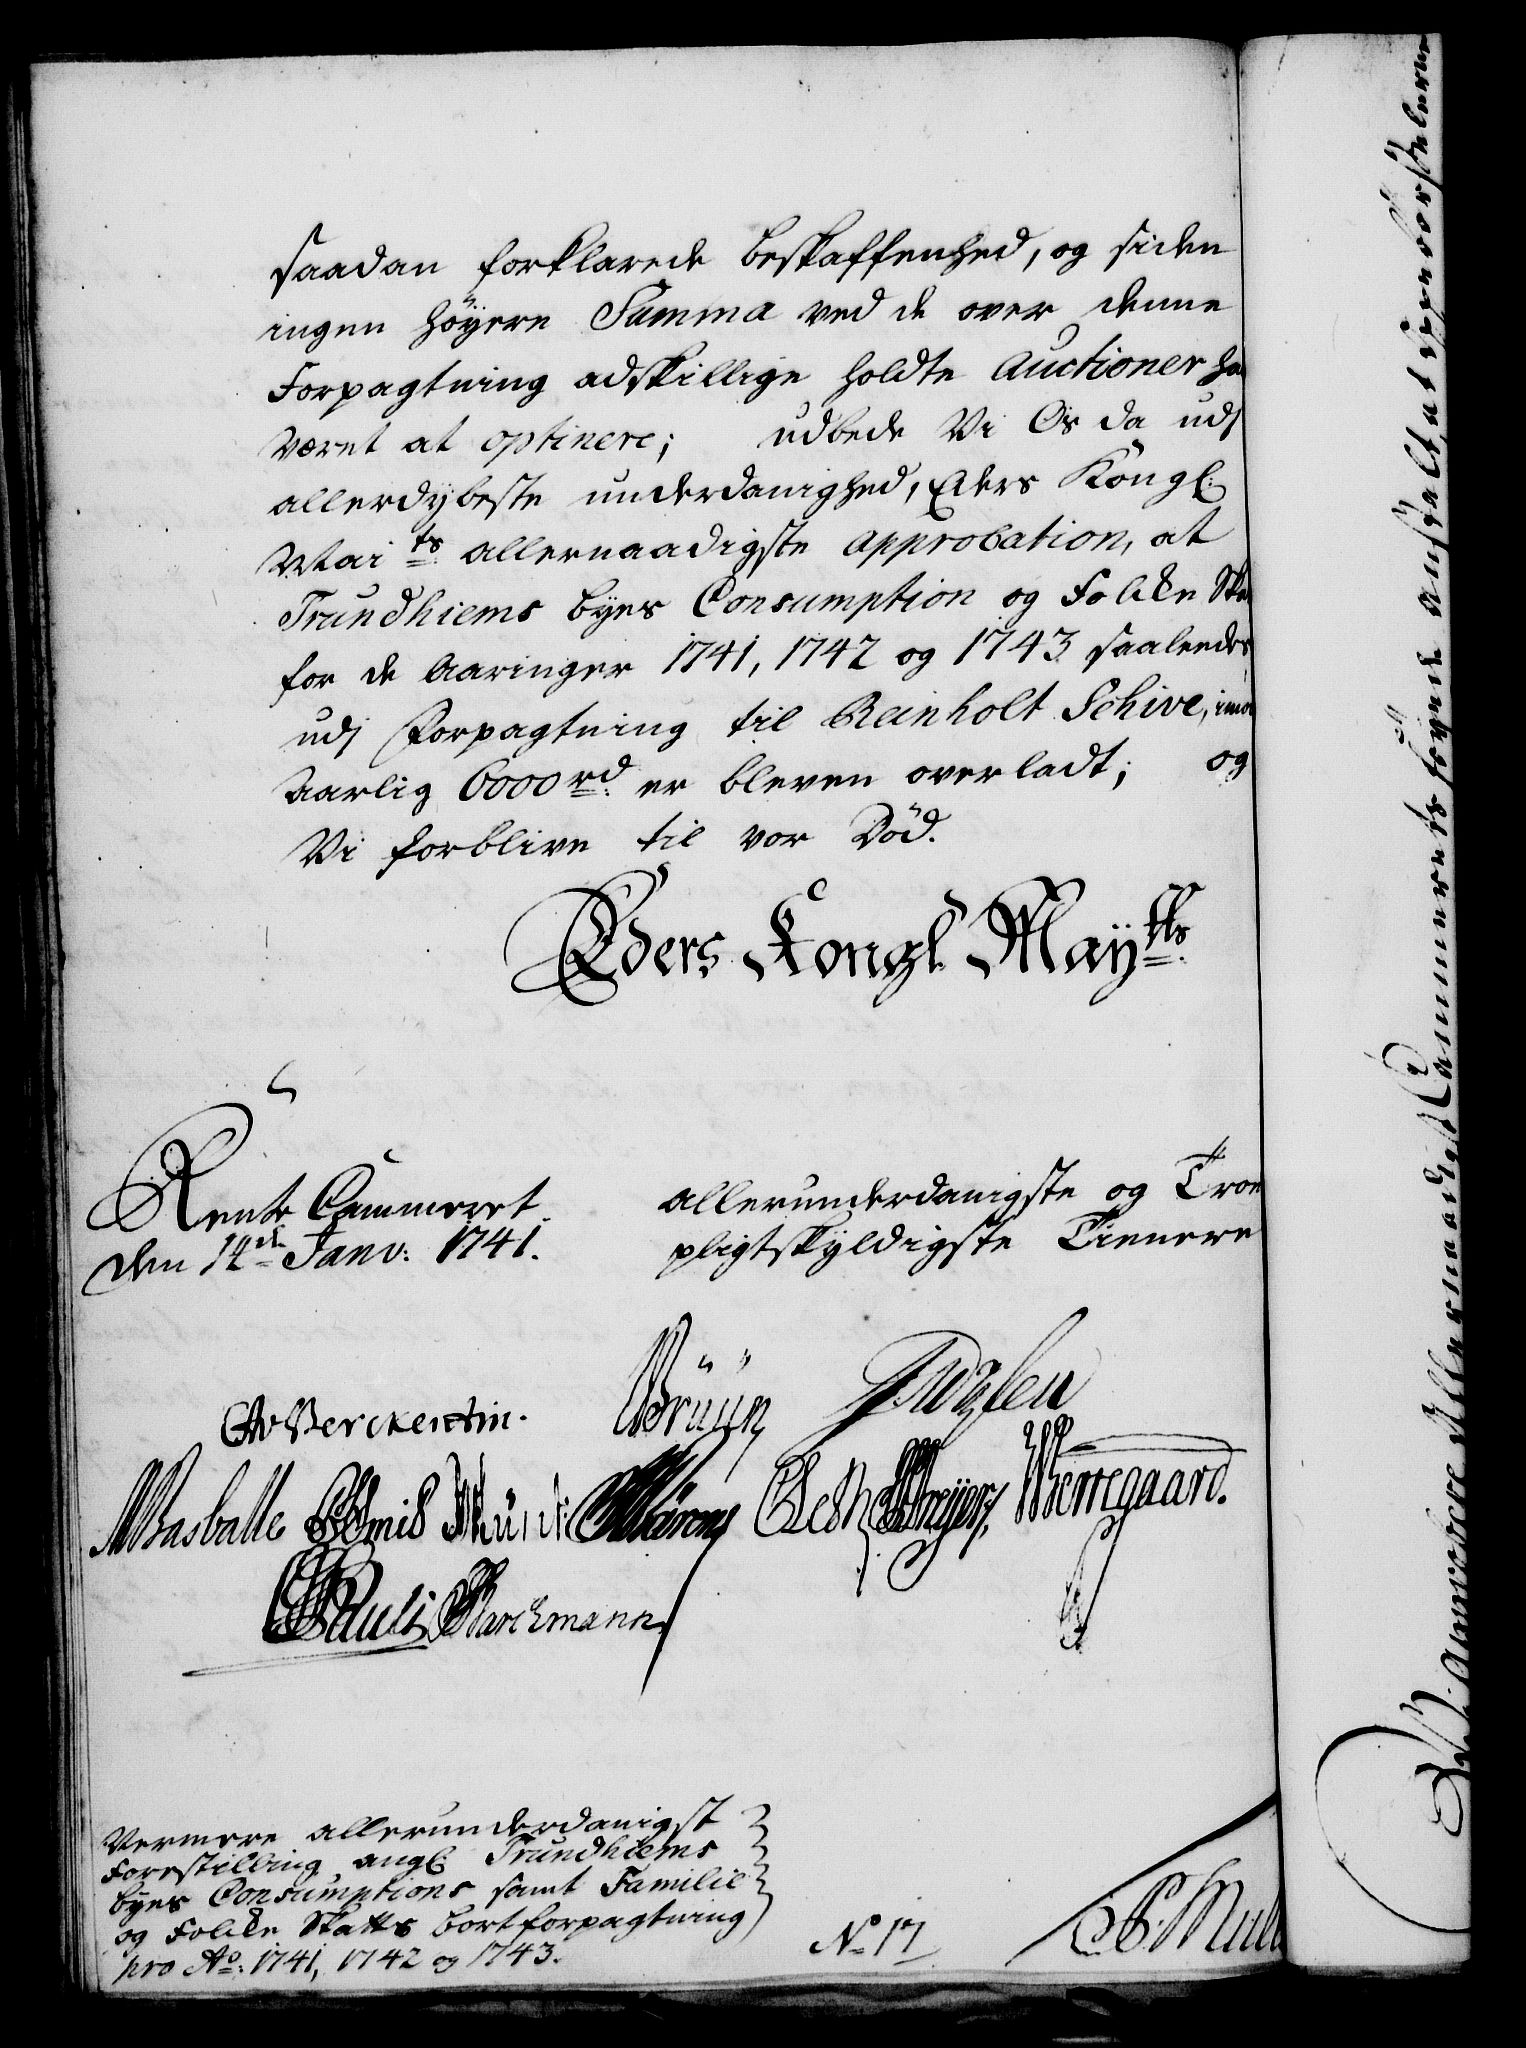 saadan forklarede beskaffenhed, og siden
ingen höyere Summa ved de over denne
Forpagtning adskillige holdte Auctioner ha
været at optinere; udbede Vi Os da udj
allerdybeste underdanighed, Eders Kongl:
Maits allernaadigste approbation, at
Trundhiems byes Consumption og Folke Ska
for de Aaringer 1741, 1742 og 1743 saaleedes
udj Forpagtning til Reinholt Schive, imo
Aarlig 6000 rd er bleven overladt; og
Vi forblive til vor Död.
Eders Kongl. Maÿtts
Rente Cammeret
den 14de Janv: 1741.
allerunderdanigste og Troe
pligtskyldigste Tienere
Berckentin.
Brüün
Basballe
Pauli Barchmann
Vermere allerunderdanigst
Forestilling angl: Trundhiems
byes Consumptions samt Familie
og Folke Skatts bortforpagtning
pro Ao: 1741, 1742 og 1743.
No 17